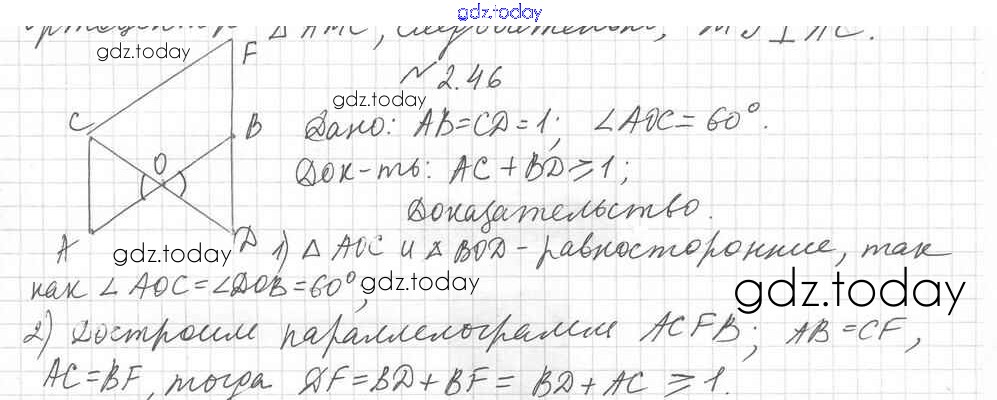 gdz.today
△ АМС, следовательно, MJ ⊥ AC.
gdz.today
F
№ 2.46
gdz.today
C B Дано: AB=CD=1; ∠AOC=60°.
O Док-ть: AC+BD⩾1;
Доказательство.
A D 1) △ AOC и △ BOD - равносторонние, так
gdz.today
как ∠AOC=∠DOB=60°,
gdz.today
gdz.today
2) Достроим параллелограмм ACFB; AB=CF,
AC=BF, тогда DF=BD+BF= BD+AC ⩾1.